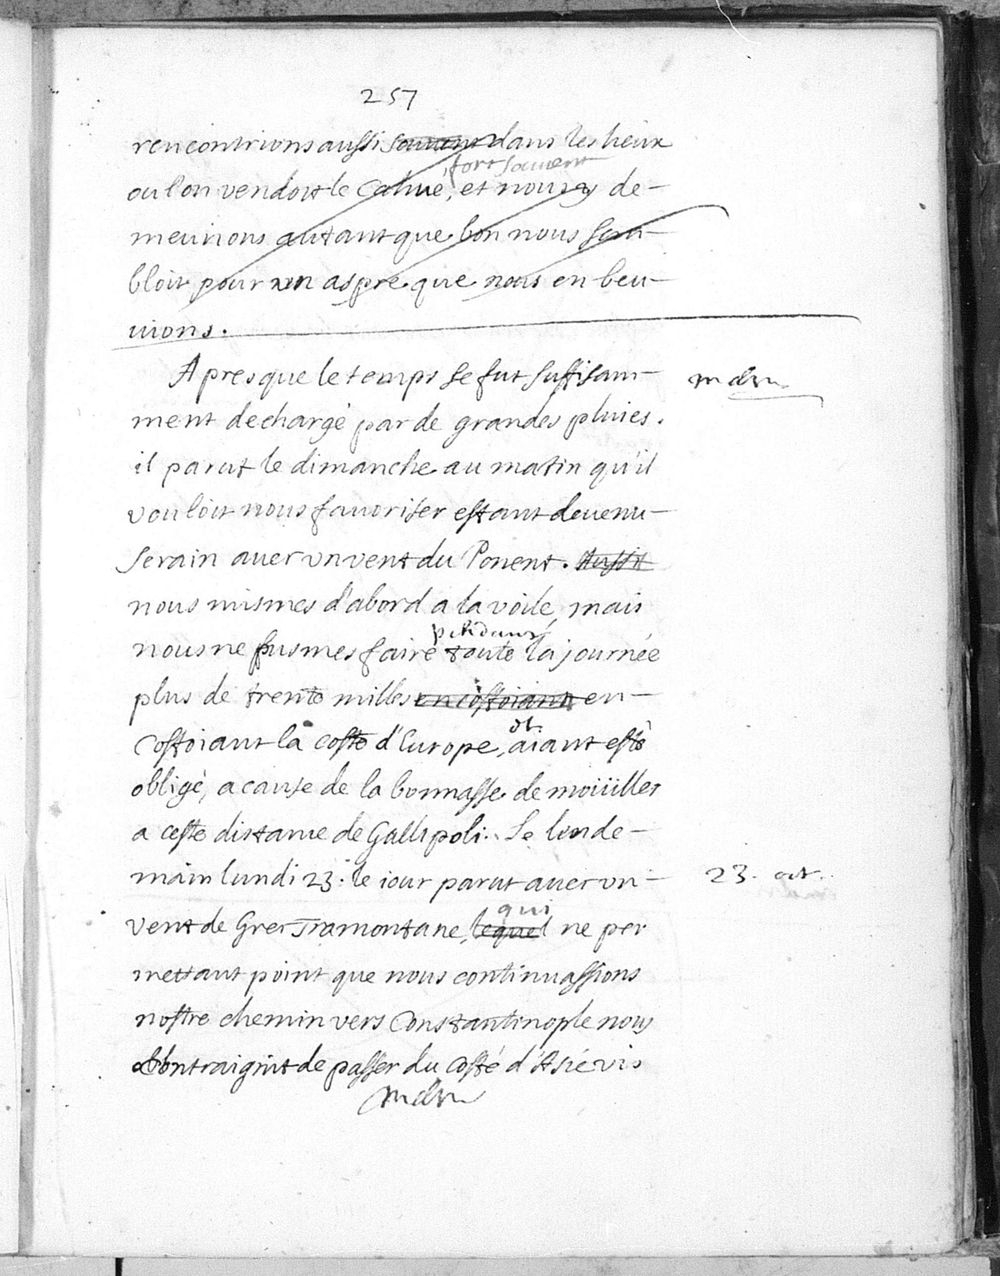 257
rencontrions aussi souuant dans les lieux
fort souuent
ou l'on vendoit le cahue, et nous y de-
meurions autant que bon nous sem-
bloit pour un aspre que nous en beu-
uions.
Apres que le temps se fut suffisam-
ment dechargé par de grandes pluies.
il parut le dimanche au matin qu'il
vouloit nous fauoriser estant deuenu
serain auec vn vent du Ponent. Aussi
nous mismes d'abord a la voile, mais
pendant
nous ne pusmes faire toute la journée
plus de trente milles encostoiant en-
costoiant la coste d'Europe, aiant esté
et
obligé, a cause de la bonnasse de moüiller
a ceste distance de Gallipoli. Le lende-
main lundi 23. le iour parut auec vn
23. oct.
qui
vent de Grec Tramontane, lequel ne per
mettant point que nous continuassions
nostre chemin vers Constantinople nous
contraignit de passer du costé d'Asie vis